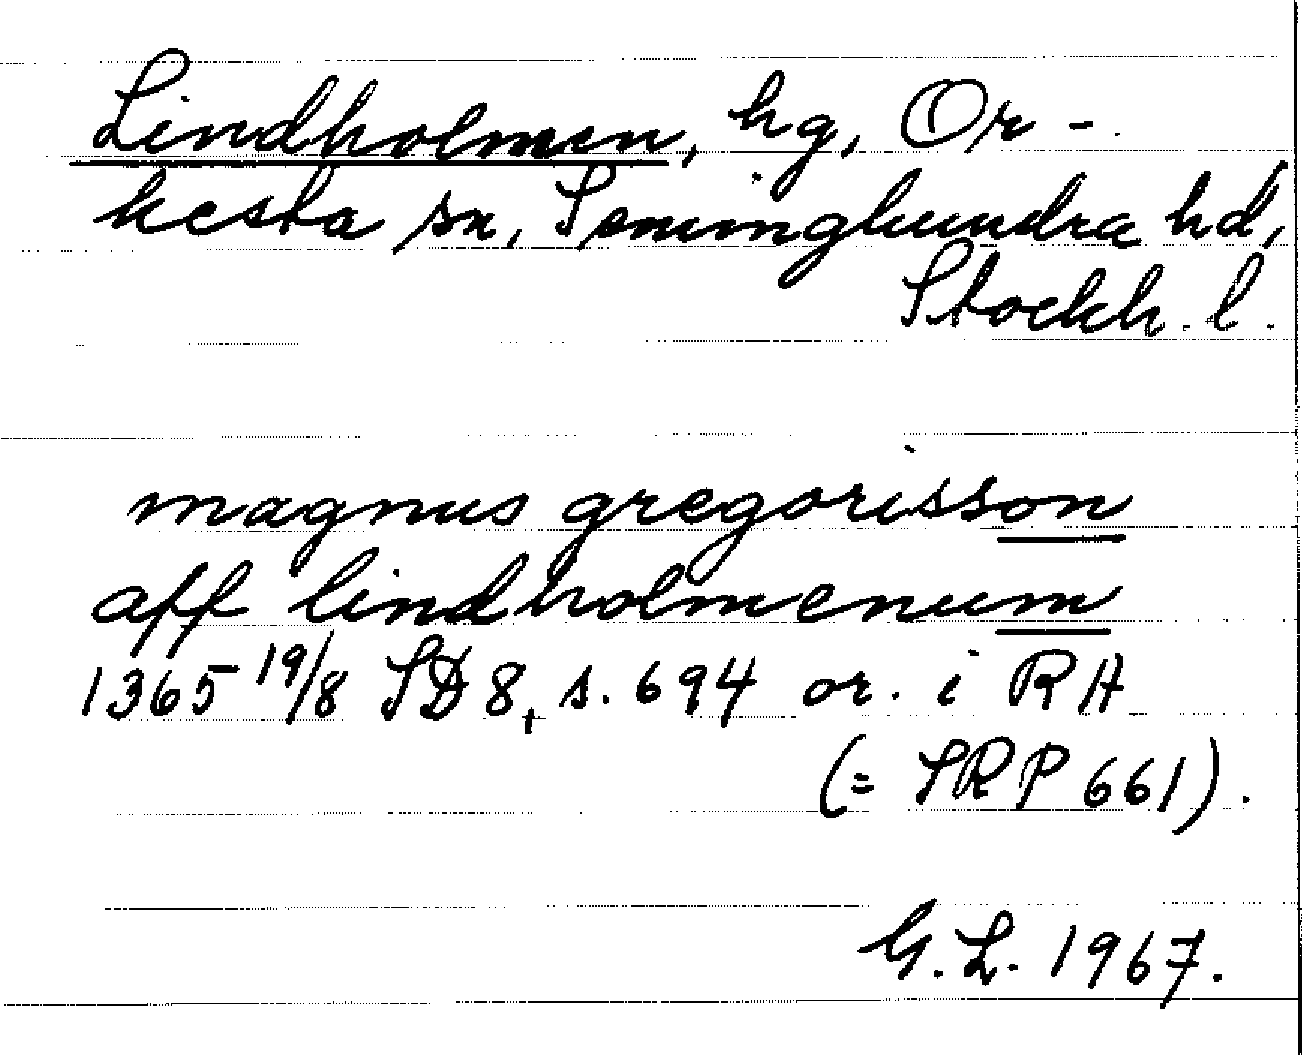 Lindholmen, hg, Or-
kesta sn, Seminghundra hd,
Stockh. l.
magnus gregorisson
aff lindholmenum
1365 19/8 SD 8, s. 694 or. i RA
(= SRP 661).
G. L. 1967.